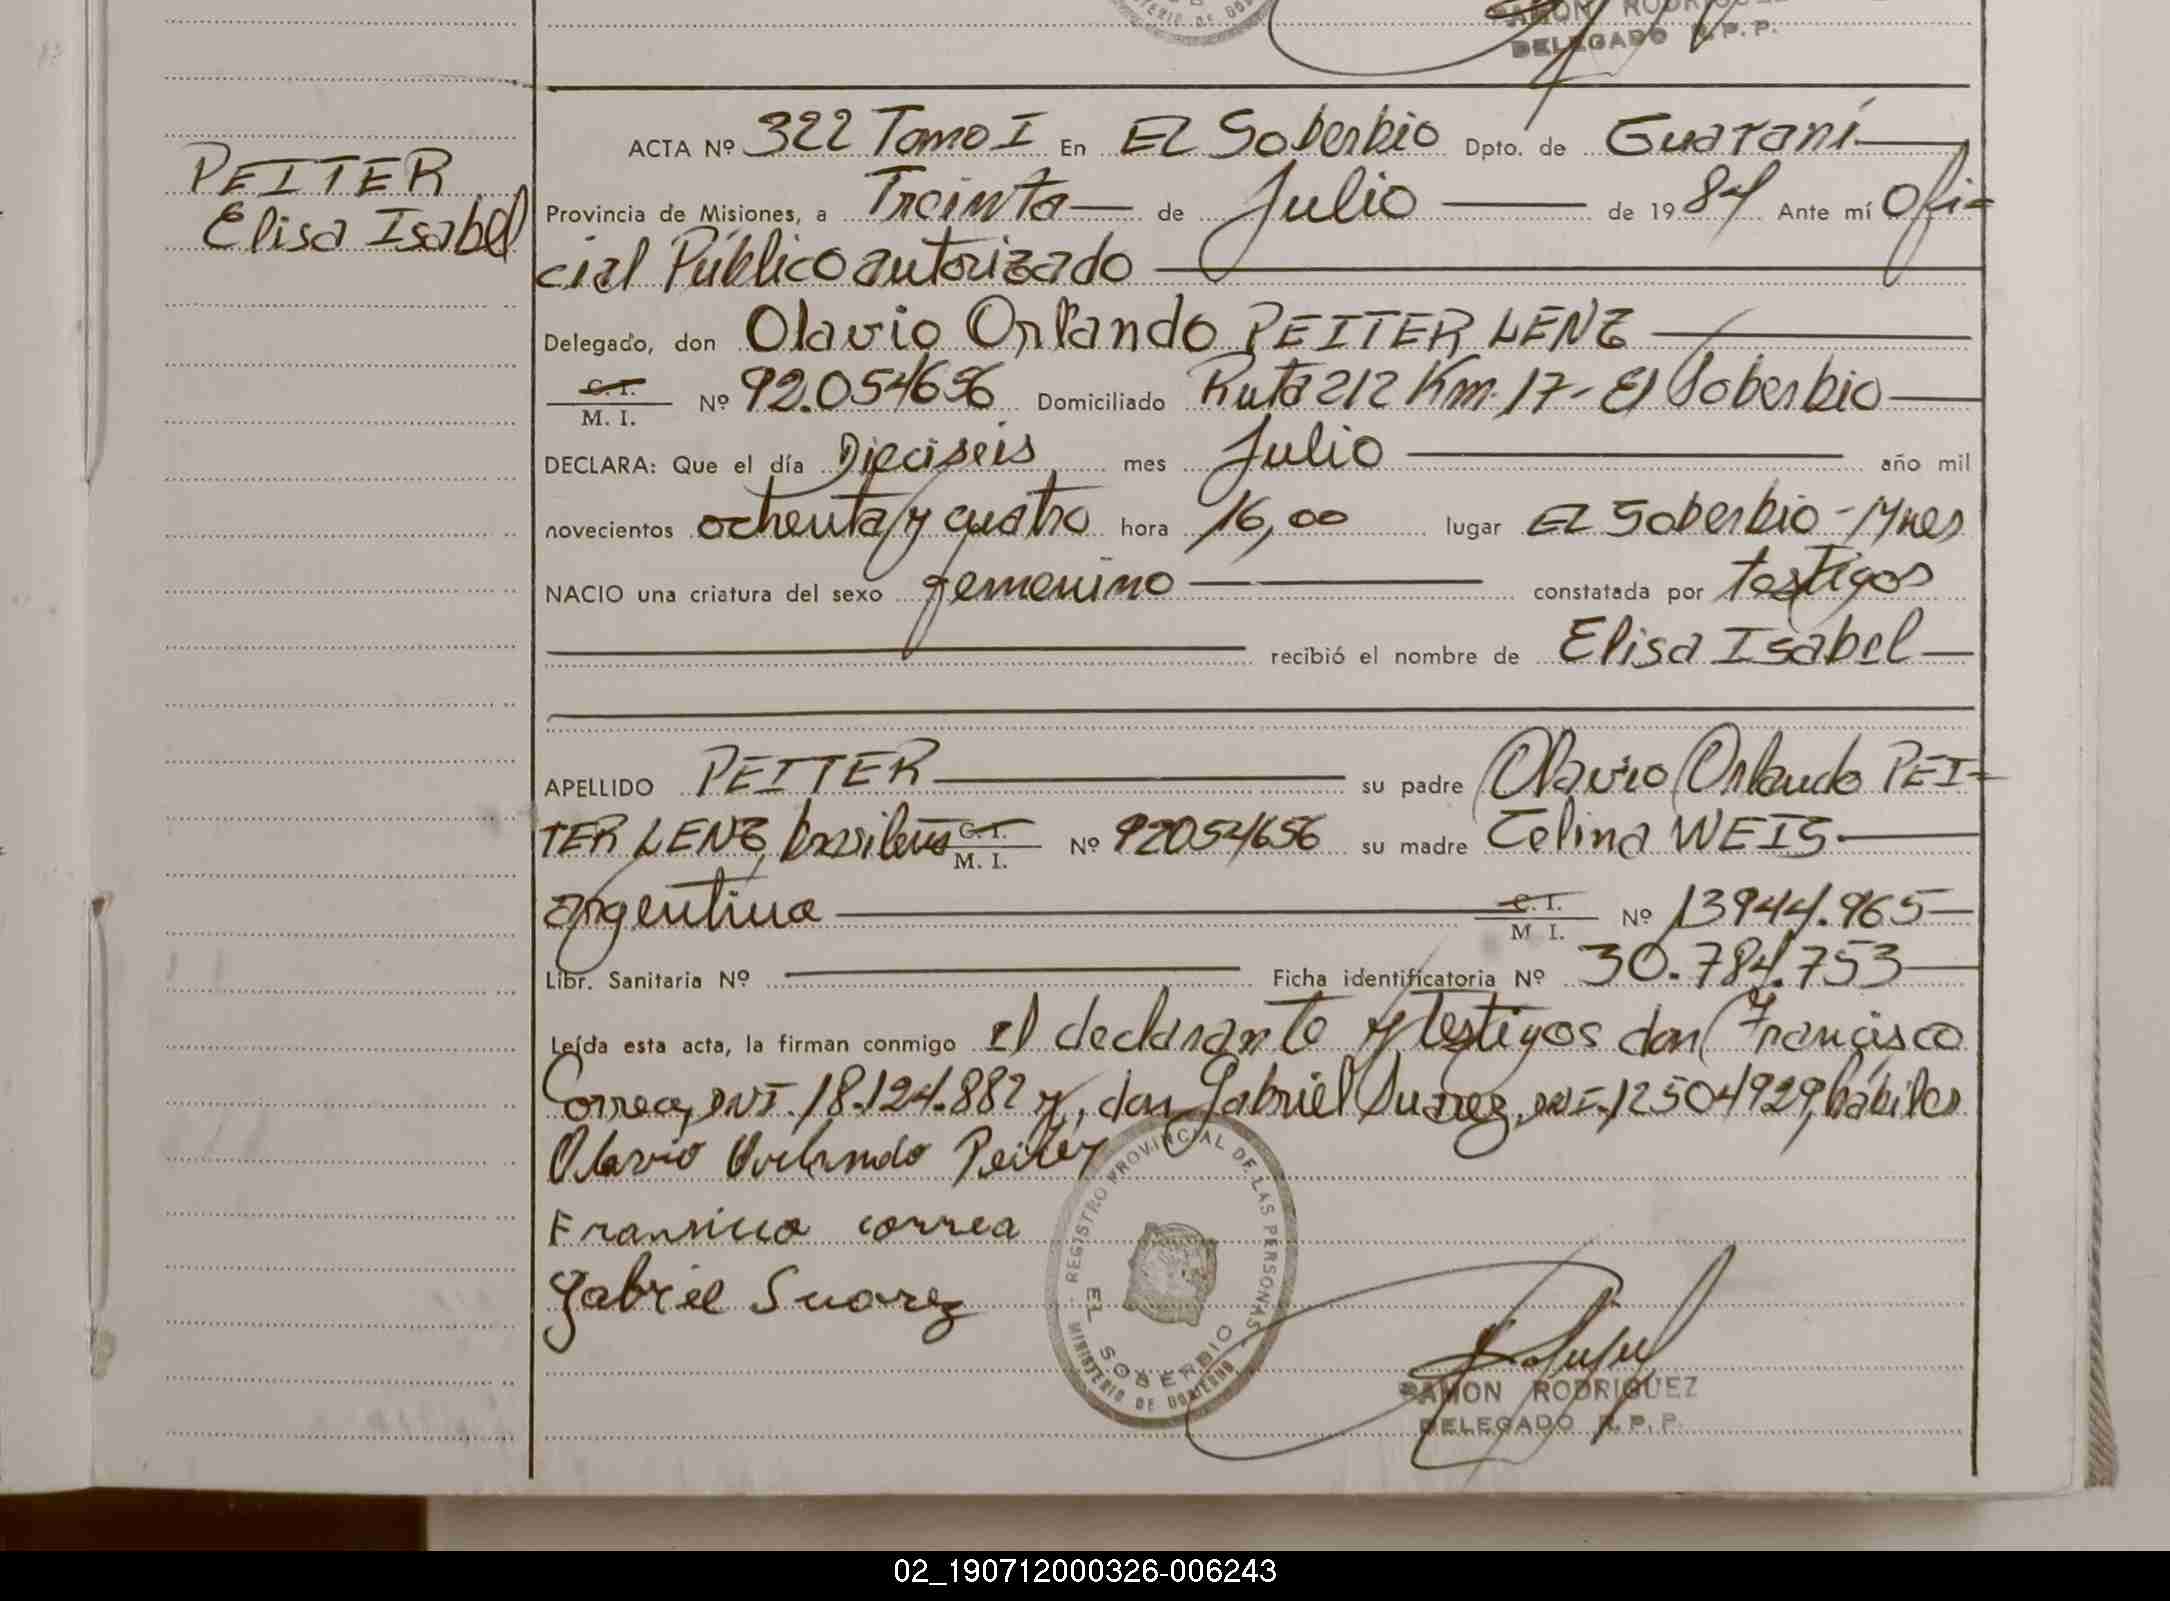 MINISTERIO DE GOB
RAMON RODRIGUEZ
DELEGADO R.P.P.
PEITER
Elisa Isabel
ACTA Nº 322 Tomo I En EL Soberbio Dpto. de Guaraní
Provincia de Misiones, a Treinta de Julio de 1984 Ante mí Ofi-
cial Público autorizado
Delegado, don Olavio Orlando PEITER LENZ
C. I.
M. I. Nº 92.054656 Domiciliado Ruta 212 Km. 17- El Soberbio
DECLARA: Que el día Dieciseis mes Julio año mil
novecientos ochenta y cuatro hora 16,00 lugar EL Soberbio - Mnes
NACIO una criatura del sexo femenino constatada por testigos
recibió el nombre de Elisa Isabel
APELLIDO PEITER su padre Olavio Orlando PEI-
TER LENZ, brasileño C. I. M. I. Nº 92054656 su madre Celina WEIS
argentina C. I. M. I. Nº 13944.965
Libr. Sanitaria Nº Ficha identificatoria Nº 30.784.753
Leída esta acta, la firman conmigo el declarante y testigos don Francisco
Correa, DNI. 18.124.882 y, don Gabriel Suarez, DNI. 12504929, hábiles
Olavio Orlando Peiter
Fransico correa
Gabriel Suarez
REGISTRO PROVINCIAL DE LAS PERSONAS
EL SOBERBIO
MINISTERIO DE GOBIERNO
RAMON RODRIGUEZ
DELEGADO R.P.P.
02_190712000326-006243